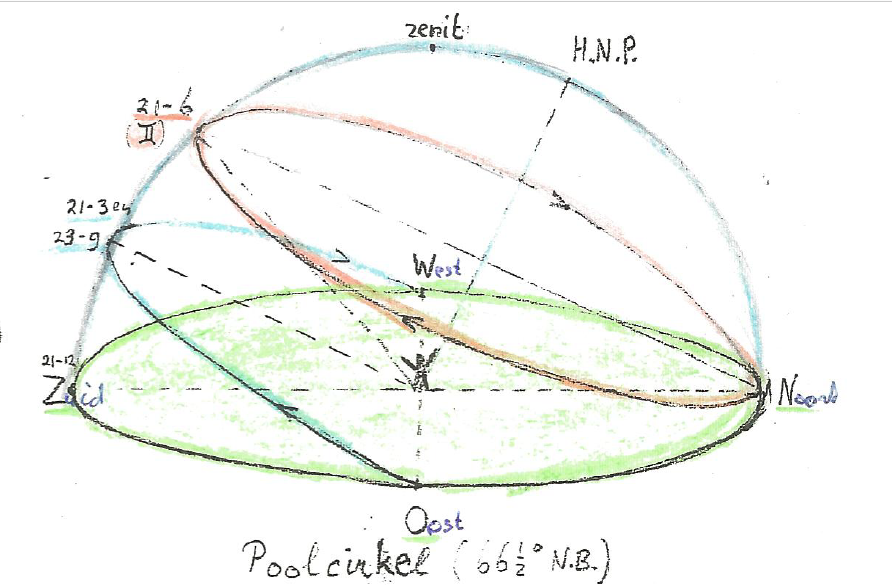 zenit
H.N.P.
21-6
(II)
21-3 en
23-9
West
21-12
Zuid
Noord
Oost
Poolcirkel (66½° N.B.)